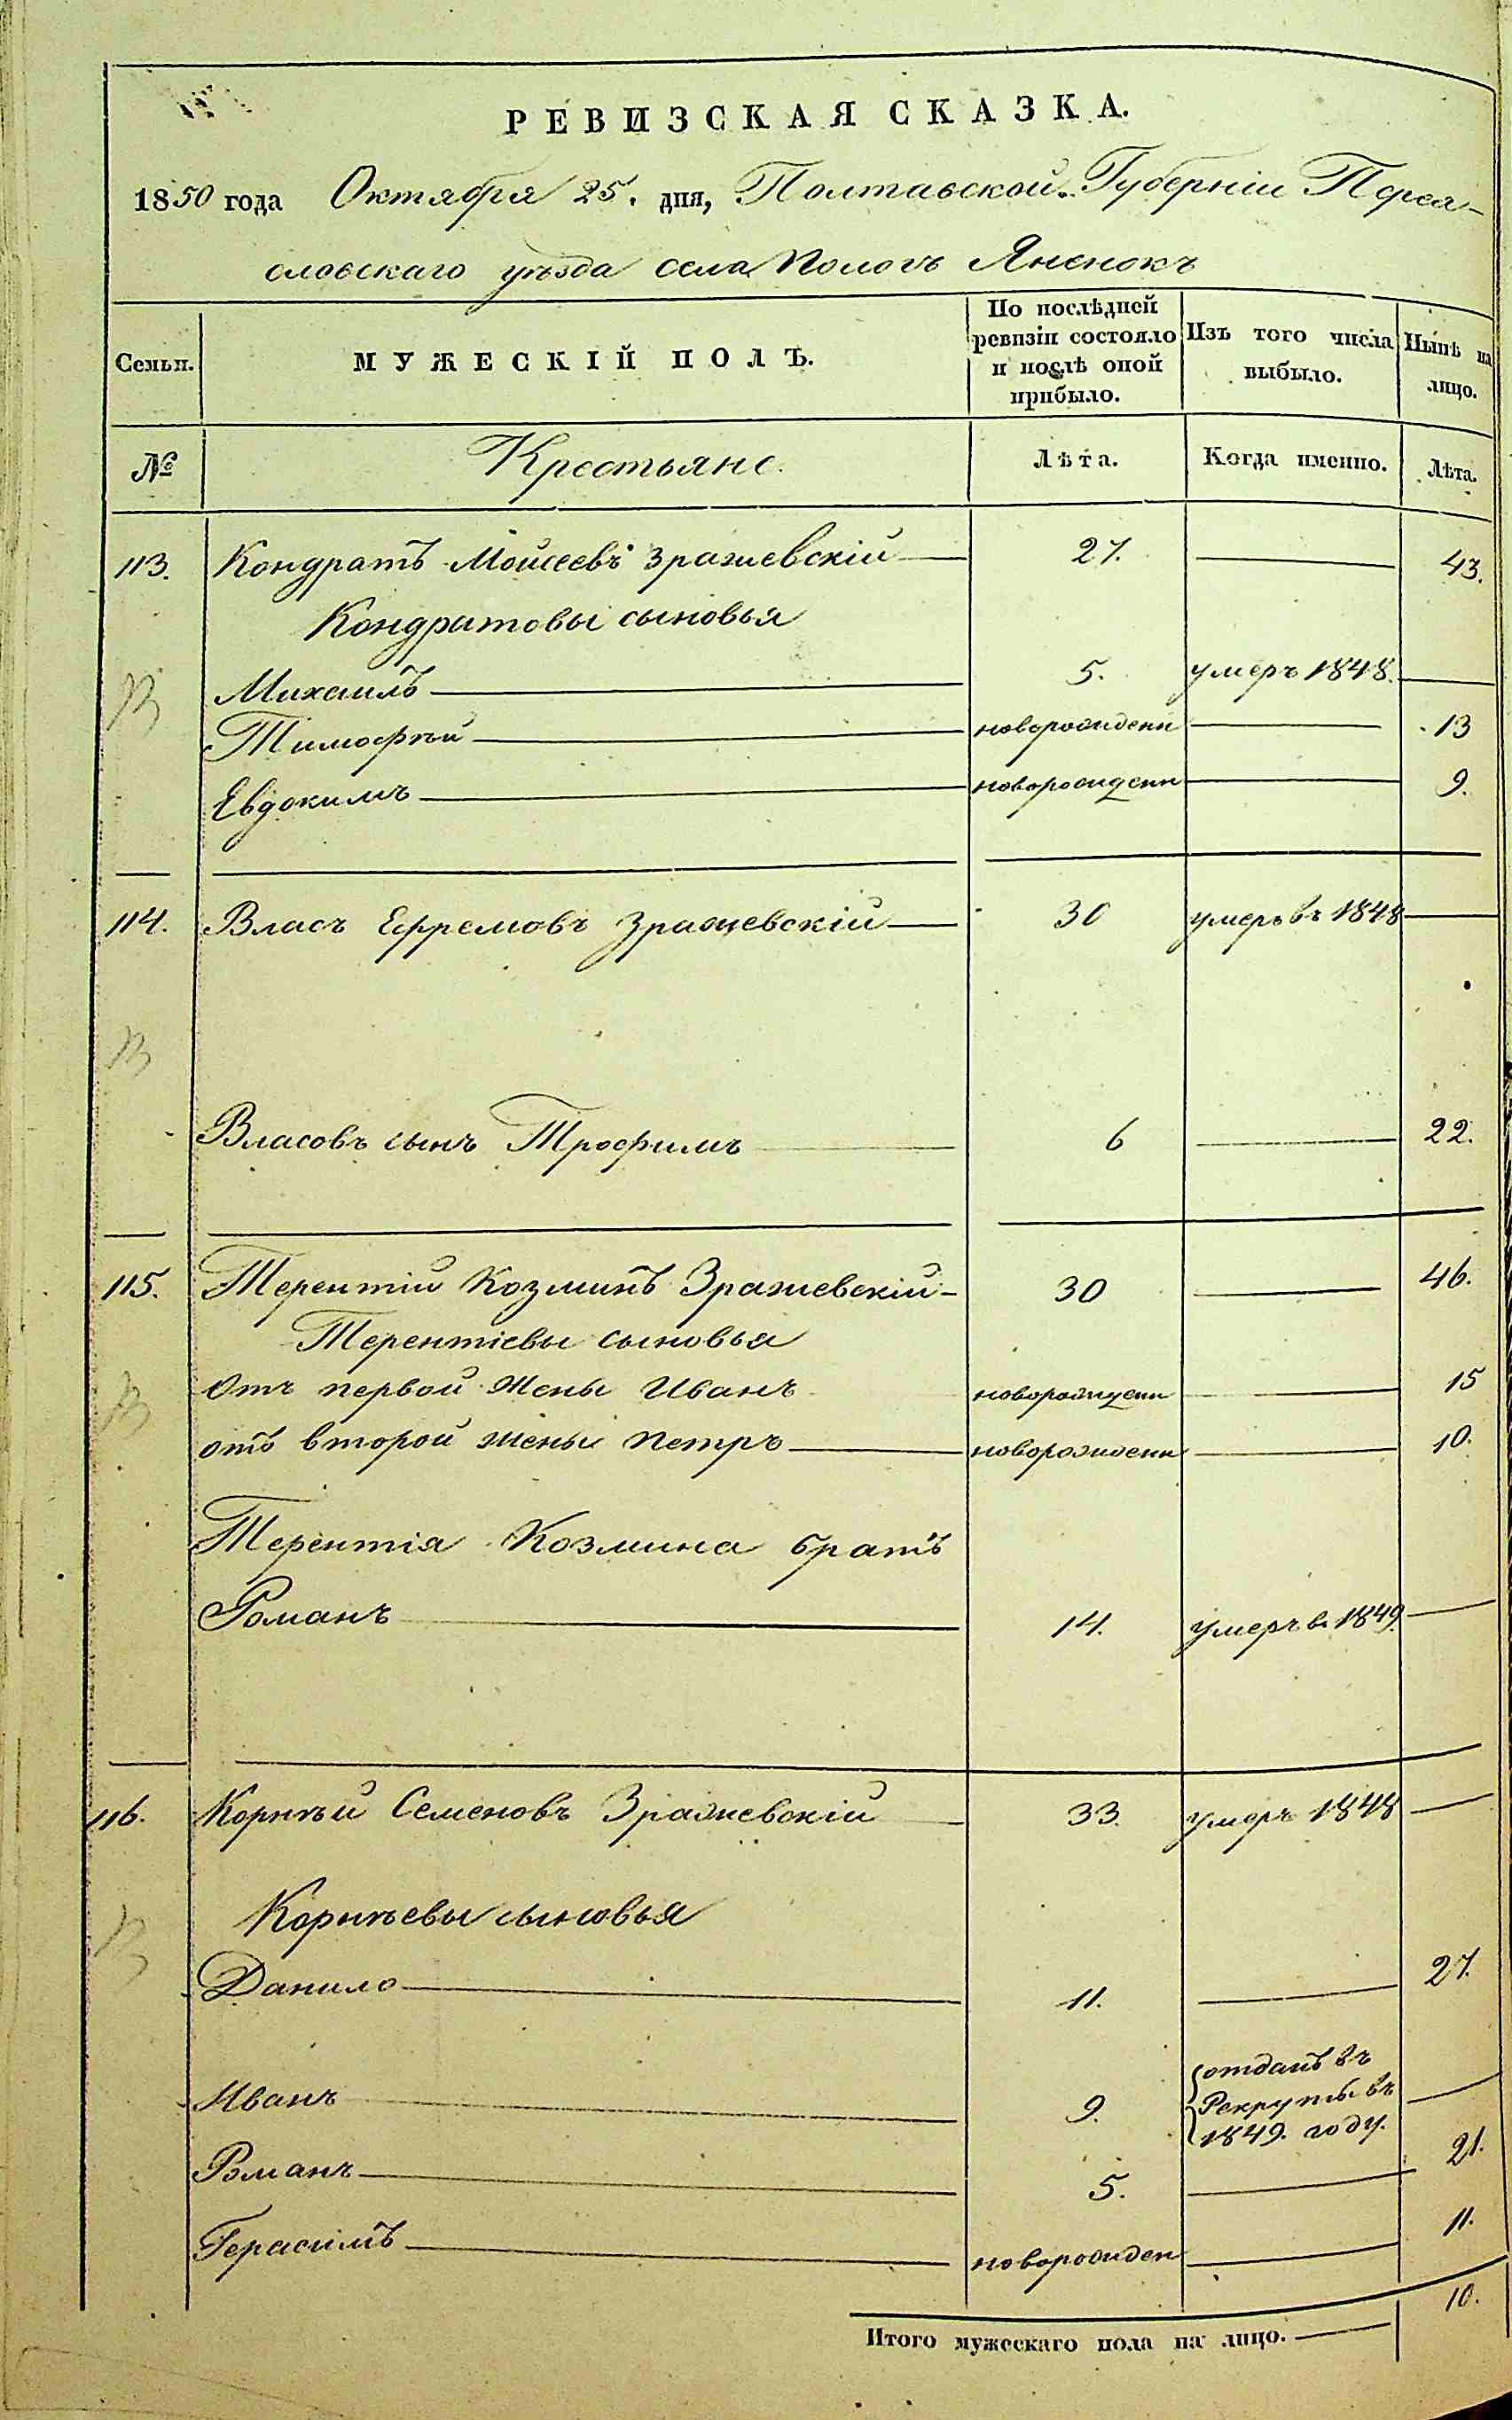 РЕВИЗСКАЯ СКАЗКА.
1850 года Октября 25. дня, Полтавской Губерніи Перея-
словскаго уѣзда села Пологъ Яненокъ
Семьи. МУЖЕСКІЙ ПОЛЪ. По послѣдней ревизіи состояло и послѣ оной прибыло. Изъ того числа выбыло. Нынѣ на лицо.
№ Крестьяне. Лѣта. Когда именно. Лѣта.
113. Кондратъ Моисеевъ Зражевскій 27. 43.
Кондратовы сыновья
Михаилъ 5. умеръ 1848.
Тимофѣй новорожденн 13
Евдокимъ новорожденн 9.
114. Власъ Ефремовъ Зражевскій 30 умеръ въ 1848
Власовъ сынъ Трофимъ 6 22.
115. Терентій Козминъ Зражевскій 30 46.
Терентіевы сыновья
Отъ первой жены Иванъ новорожденн 15
отъ второй жены Петръ новорожденн 10.
Терентія Козмина братъ
Романъ 14. умеръ в. 1849.
116. Корнѣй Семеновъ Зражевскій 33. умеръ 1848
Корнѣевы сыновья
Данило 11. 27.
Иванъ 9. отданъ въ
Рекруты въ
1849. году.
Романъ 5. 21.
Герасимъ новорожден 11.
Итого мужескаго пола на лицо. 10.